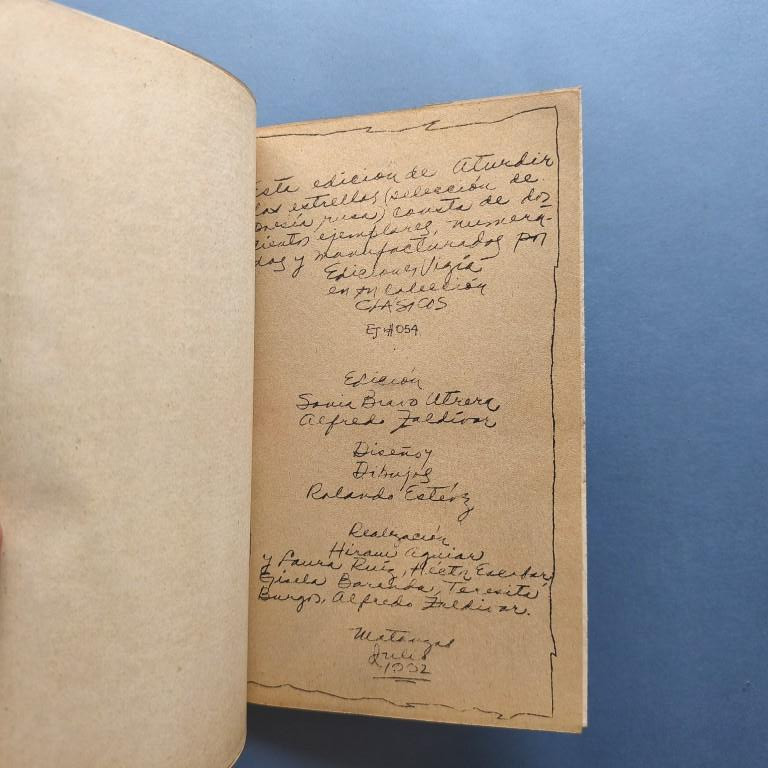 Esta edición de Aturdir
las estrellas (selección de
poesía rusa) consta de dos
cientos ejemplares, numera-
dos y manufacturados por
Ediciones Vigía
en su colección
CLÁSICOS
EJ #054
Edición
Sonia Bravo Utrera
Alfredo Zaldívar
Diseño y
Dibujos
Rolando Estévez
Realización
Hiram Aguiar
y Laura Ruiz, Héctor Escobar,
Gisela Baranda, Teresita
Burgos, Alfredo Zaldívar.
Matanzas
Julio
1992